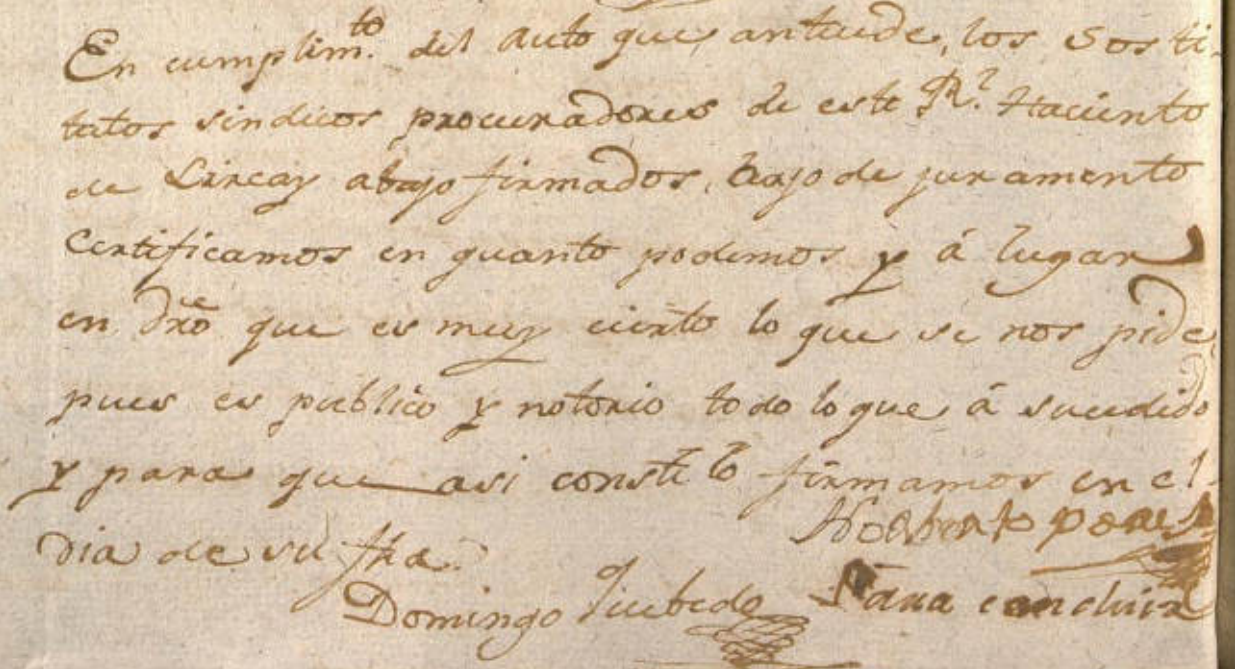 En cumplim.to del auto que antecede, los sosti-
tutos sindicos procuradores de este Rl. Haciento
de Lircay abajo firmados, bajo de juramento
Certificamos en quanto podemos y á lugar
en Dro que es muy cierto lo que se nos pide,
pues es publico y notorio todo lo que á sucedido
y para que asi conste lo firmamos en el
dia de su fha.
Norberto
Domingo Quebedo